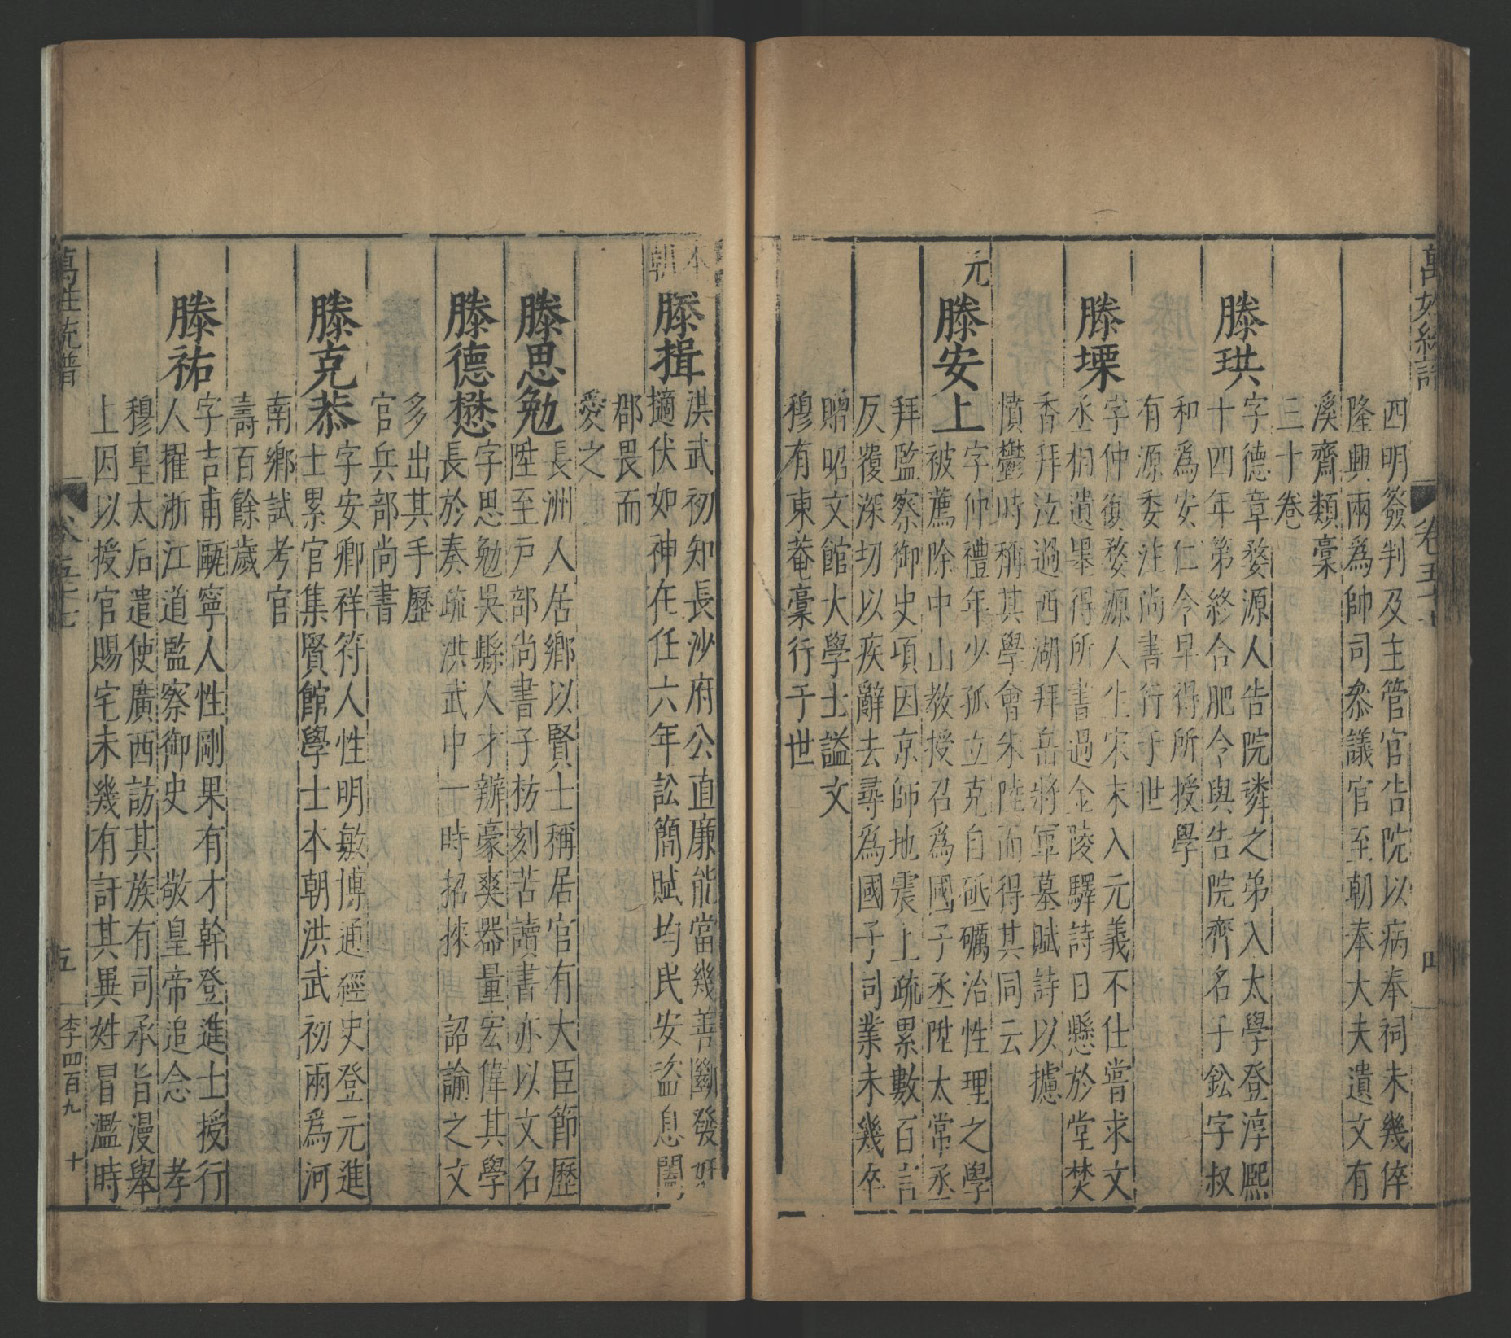 四明簽判及主管官告院以病奉祠未幾倅
隆興兩為帥司叅議官至朝奉大夫遺文有
溪齋類藁
三十卷
滕珙
字德章婺源人告院璘之弟入太學登淳熙
十四年第終合肥令與告院齊名子鈆字叔
和為安仁令早得所授學
有源委注尚書行于世
滕㙩
字仲復婺源人生宋末入元義不仕嘗求文
丞相遺墨得所書過金陵驛詩曰懸於堂焚
香拜泣過西湖拜岳將軍墓賦詩以攄
憤鬱時稱其學會朱陸而得其同云
元
滕安上
字仲禮年少孤立克自砥礪治性理之學
被薦除中山教授召為國子丞陞太常丞
拜監察御史項因京師地震上疏累數百言
反覆深切以疾辭去尋為國子司業未幾卒
贈昭文館大學士謚文
穆有東菴藁行于世
萬姓統譜
卷五十七
四
本朝
滕揖
洪武初知長沙府公直廉能當幾善斷發奸
擿伏如神在任六年訟簡賦均民安盜息闔
郡畏而
愛之
滕思勉
長洲人居鄉以賢士稱居官有大臣節歷
陞至戶部尚書子枋刻苦讀書亦以文名
滕德懋
字思勉吳縣人才辨豪爽器量宏偉其學
長於奏疏洪武中一時招徠 詔諭之文
多出其手歷
官兵部尚書
滕克恭
字安卿祥符人性明敏博通經史登元進
士累官集賢館學士本朝洪武初兩為河
南鄉試考官
壽百餘歲
滕祐
字吉甫甌寧人性剛果有才幹登進士授行
人擢浙江道監察御史 敬皇帝追念 孝
穆皇太后遣使廣西訪其族有司承旨漫舉
上因以授官賜宅未幾有訐其異姓冒濫時
萬姓統譜
卷五十七
五
李四百九十